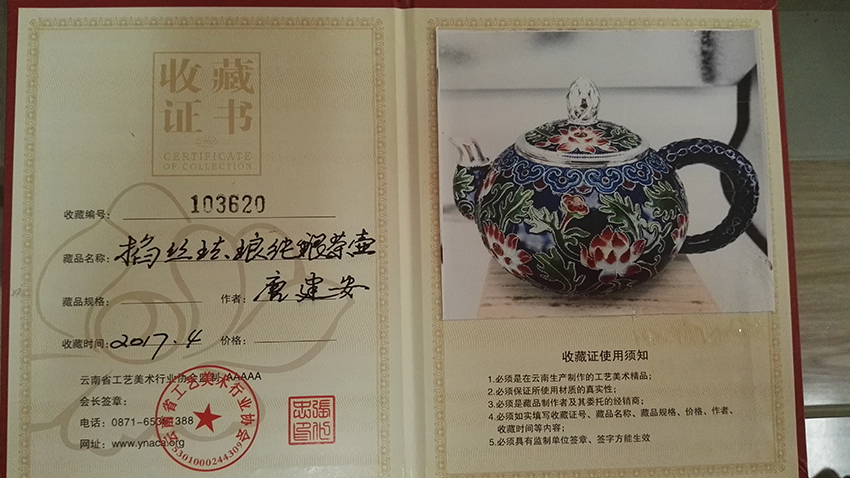 收藏
证书
CERTIFICATE
OF COLLECTION
收藏编号: 103620
藏品名称: 掐丝珐琅纯银茶壶
藏品规格: 作者: 唐建安
收藏时间: 2017.4 价格:
云南省工艺美术行业协会监制 AAAAA
会长签章:
电话: 0871-653 388
网址: www.ynaca.org
云南省工艺美术行业协会
5301000244309
收藏证使用须知
1.必须是在云南生产制作的工艺美术精品;
2.必须保证所使用材质的真实性;
3.必须是藏品制作者及其委托的经销商;
4.必须如实填写收藏证号、藏品名称、藏品规格、价格、作者、
收藏时间等内容;
5.必须具有监制单位签章、签字方能生效